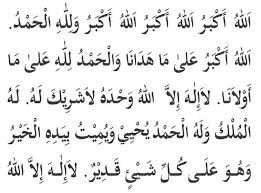 اَللهُ أَكْبَرُ اَللهُ أَكْبَرُ اَللهُ أَكْبَرُ وَلِلّٰهِ الْحَمْدُ.
اَللهُ أَكْبَرُ عَلىٰ مَا هَدَانَا وَالْحَمْدُ لِلّٰهِ عَلىٰ مَا
أَوْلَانَا. لَاإِلٰهَ إِلاَّ اللهُ وَحْدَهُ لاَشَرِيْكَ لَهُ. لَهُ
الْمُلْكُ وَلَهُ الْحَمْدُ يُحْيِيْ وَيُمِيْتُ بِيَدِهِ الْخَيْرُ
وَهُوَ عَلىٰ كُلِّ شَيْئٍ قَدِيْرٌ. لَاإِلٰهَ إِلاَّ اللهُ